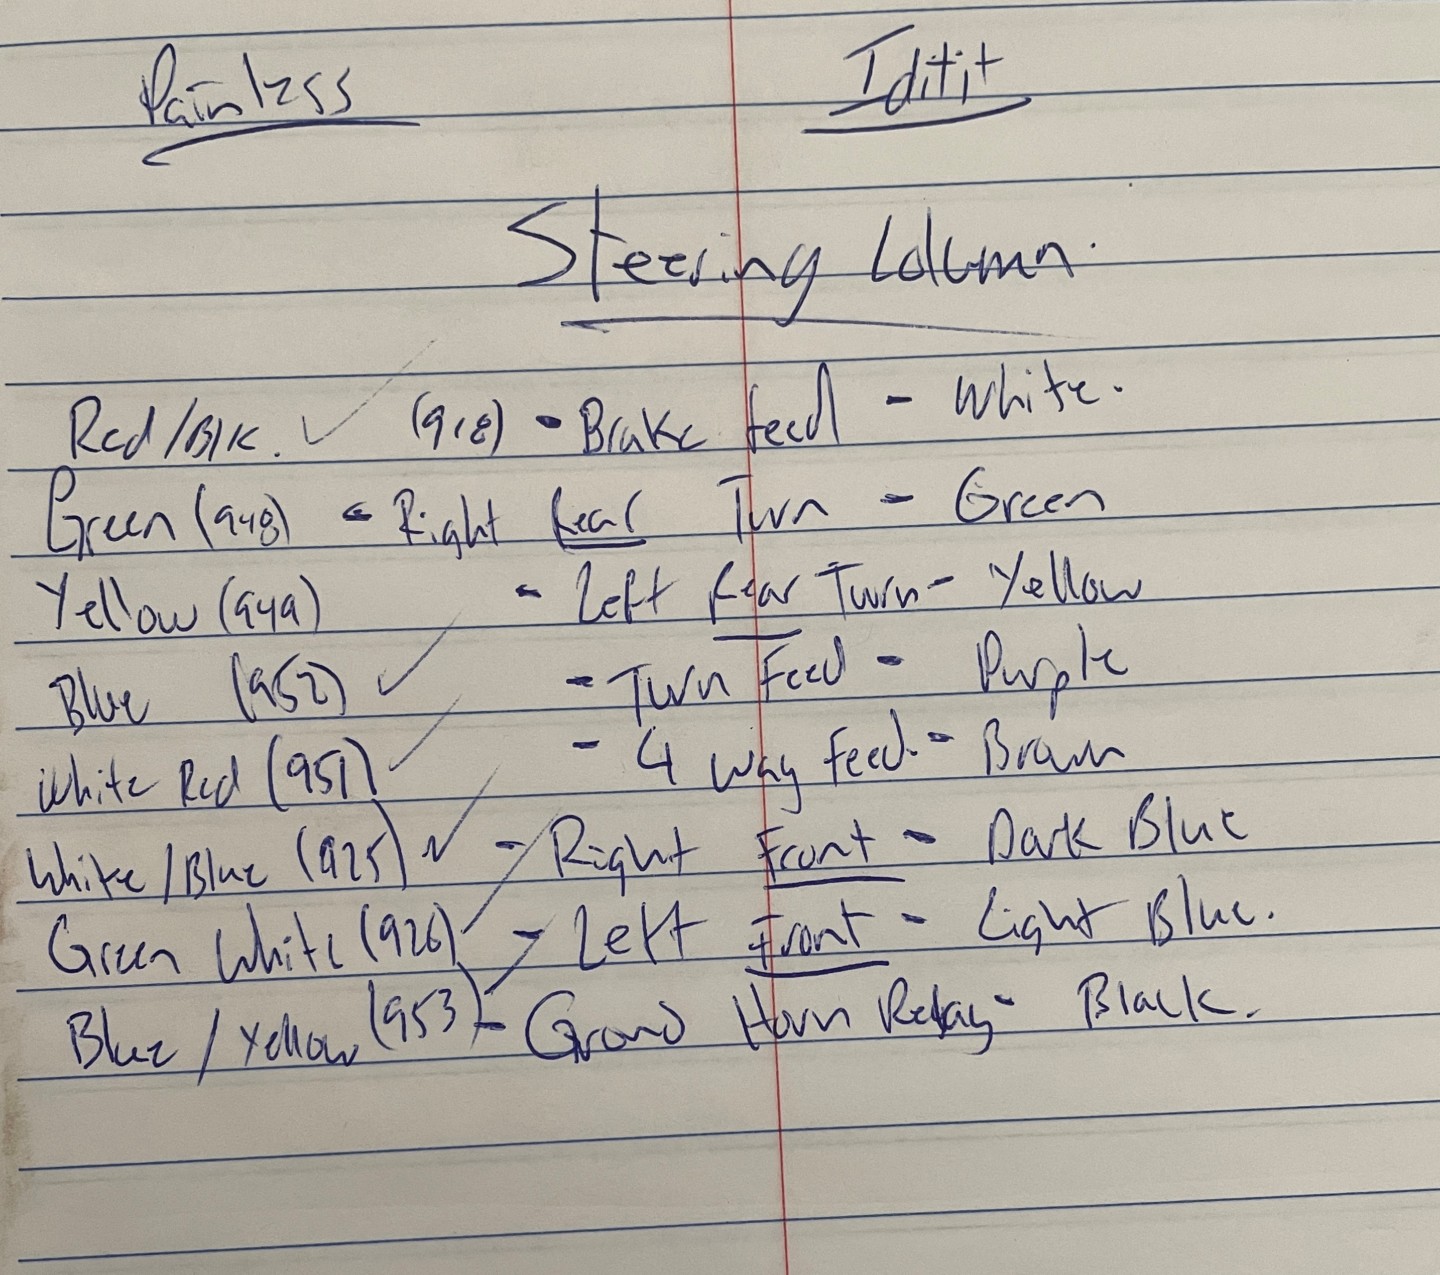 Painless Iditit
Steering Column.
Red/Blk. ✓ (918) - Brake feed - White.
Green (948) - Right Rear Turn - Green
Yellow (949) - Left Rear Turn - Yellow
Blue (952) ✓ - Turn Feed - Purple
White Red (951) ✓ - 4 way feed - Brown
White/Blue (925) ✓ - Right Front - Dark Blue
Green White (926) ✓ - Left Front - Light Blue.
Blue/Yellow (953) ✓ - Ground Horn Relay - Black.